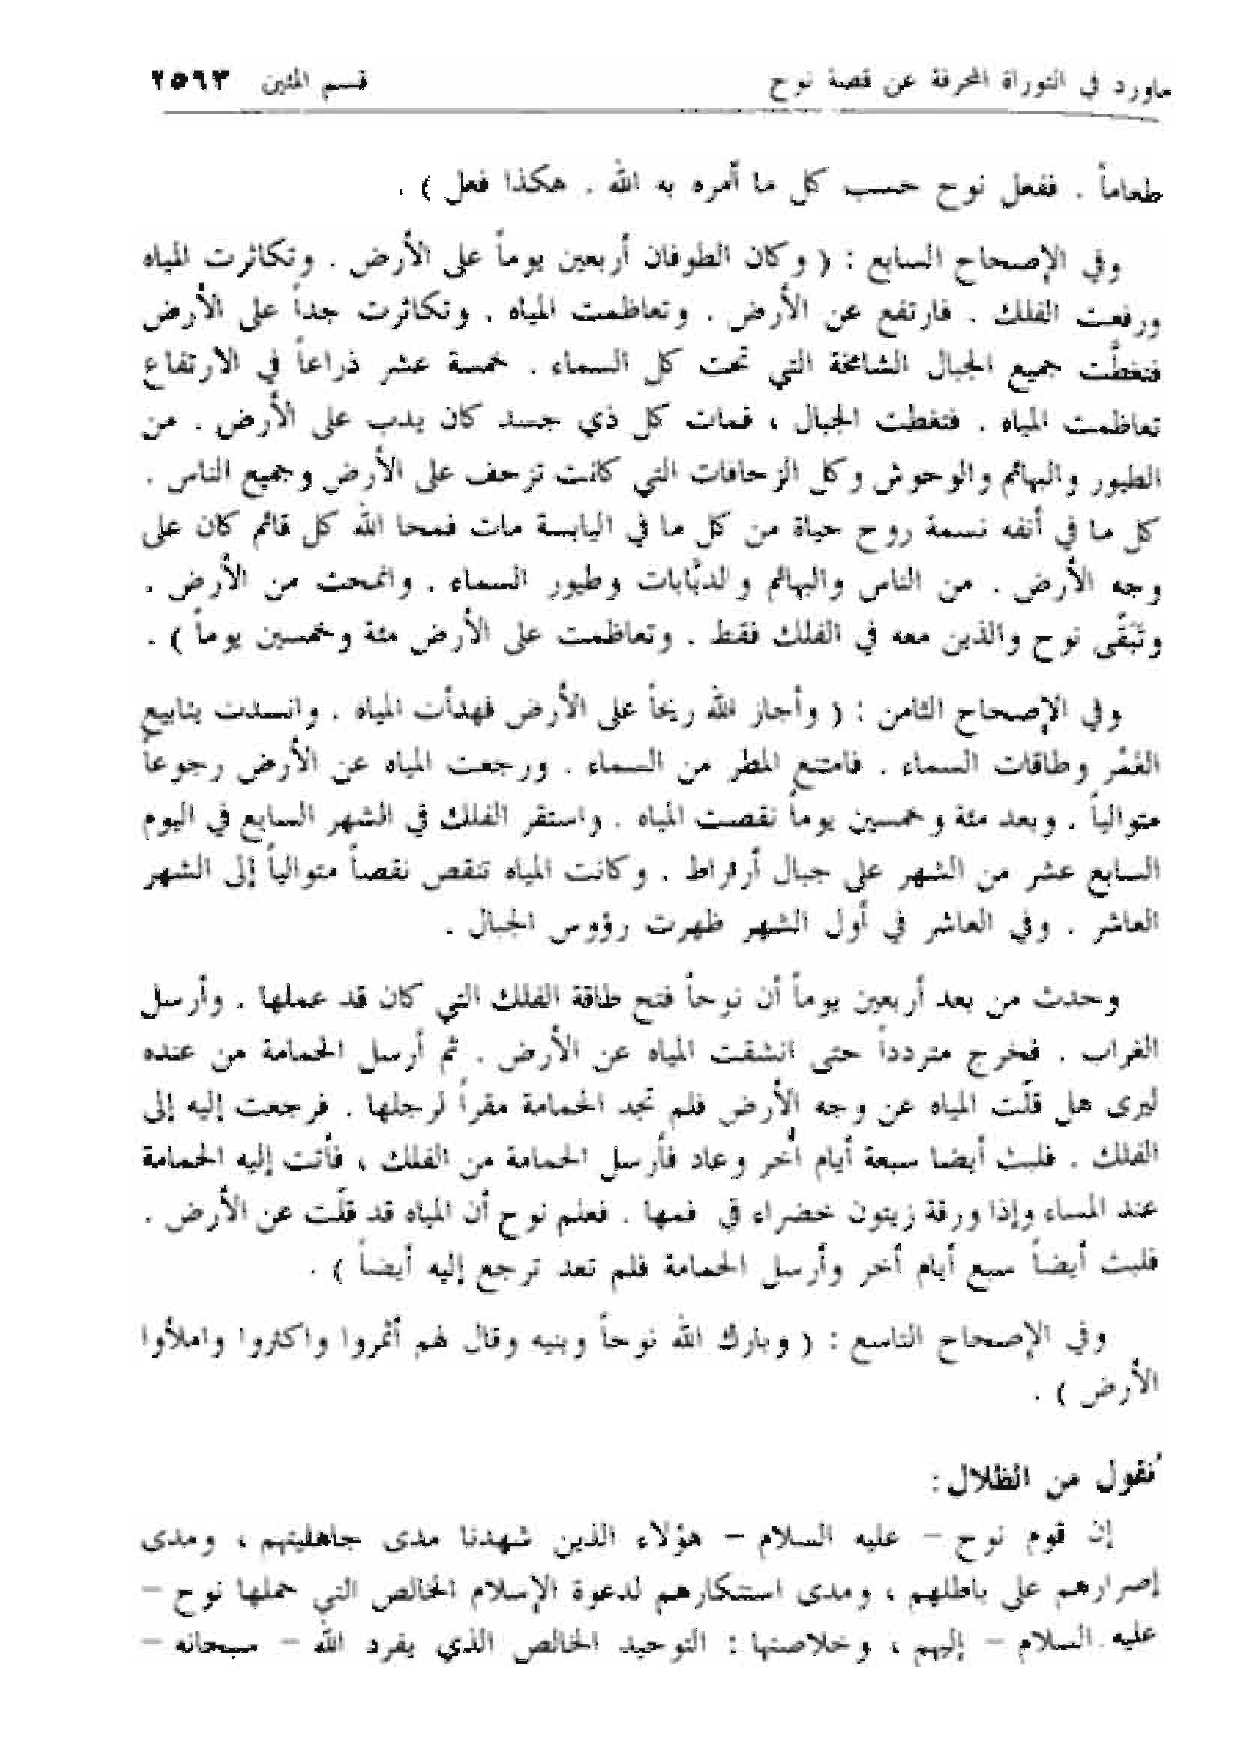 ماورد في التوراة المحرفة عن قصة نوح قسم المئين ٢٥٦٣
طعاماً . ففعل نوح حسب كل ما أمره به الله . هكذا فعل ) .
وفي الإصحاح السابع : ( وكان الطوفان أربعين يوماً على الأرض . وتكاثرت المياه
ورفعت الفلك . فارتفع عن الأرض . وتعاظمت المياه . وتكاثرت جداً على الأرض
فتغطَّت جميع الجبال الشامخة التي تحت كل السماء . خمسة عشر ذراعاً في الارتفاع
تعاظمت المياه . فتغطت الجبال ، فمات كل ذي جسد كان يدب على الأرض . من
الطيور والبهائم والوحوش وكل الزحافات التي كانت تزحف على الأرض وجميع الناس .
كل ما في أنفه نسمة روح حياة من كل ما في اليابسة مات فمحا الله كل قائم كان على
وجه الأرض . من الناس والبهائم والدبّابات وطيور السماء . وانمحت من الأرض .
وتَبَقَّى نوح والذين معه في الفلك فقط . وتعاظمت على الأرض مئة وخمسين يوماً ) .
وفي الإصحاح الثامن : ( وأجاز الله ريحاً على الأرض فهدأت المياه . وانسدت ينابيع
الغَمْر وطاقات السماء . فامتنع المطر من السماء . ورجعت المياه عن الأرض رجوعاً
متوالياً . وبعد مئة وخمسين يوماً نقصت المياه . واستقر الفلك في الشهر السابع في اليوم
السابع عشر من الشهر على جبال أرفراط . وكانت المياه تنقص نقصاً متوالياً إلى الشهر
العاشر . وفي العاشر في أول الشهر ظهرت رؤوس الجبال .
وحدث من بعد أربعين يوماً أن نوحاً فتح طاقة الفلك التي كان قد عملها . وأرسل
الغراب . فخرج متردداً حتى انشقت المياه عن الأرض . ثم أرسل الحمامة من عنده
ليرى هل قلّت المياه عن وجه الأرض فلم تجد الحمامة مقراً لرجلها . فرجعت إليه إلى
الفلك . فلبث أيضا سبعة أيام أُخر وعاد فأرسل الحمامة من الفلك ، فأتت إليه الحمامة
عند المساء وإذا ورقة زيتون خضراء في فمها . فعلم نوح أن المياه قد قلّت عن الأرض .
فلبث أيضاً سبع أيام أخر وأرسل الحمامة فلم تعد ترجع إليه أيضاً ) .
وفي الإصحاح التاسع : ( وبارك الله نوحاً وبنيه وقال لهم أثمروا واكثروا واملأوا
الأرض ) .
نقول من الظلال :
إن قوم نوح – عليه السلام – هؤلاء الذين شهدنا مدى جاهليتهم ، ومدى
إصرارهم على باطلهم ، ومدى استنكارهم لدعوة الإسلام الخالص التي حملها نوح –
عليه السلام – إليهم ، وخلاصتها : التوحيد الخالص الذي يفرد الله – سبحانه –